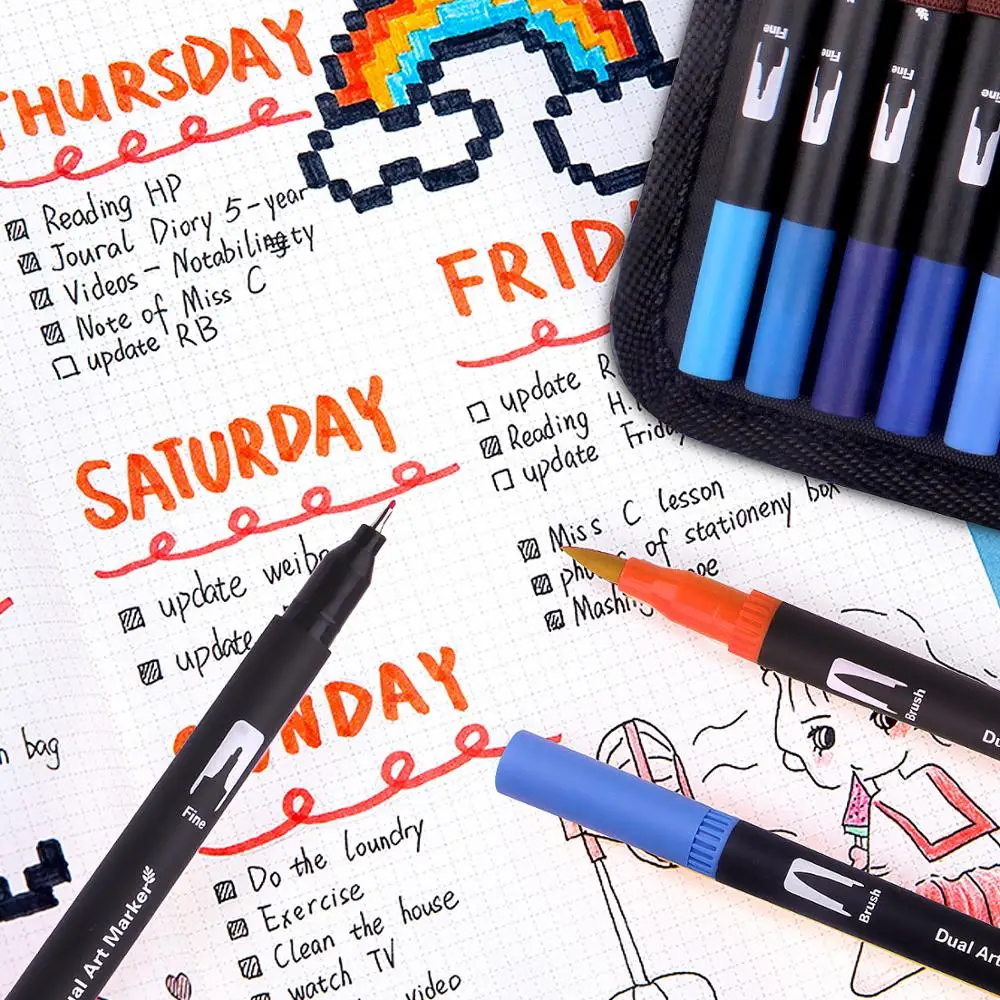 THURSDAY
Reading HP
Joural Diary 5-year
Videos - Notability
Note of Miss C
update RB
FRID
update R
Reading H.
update Frida
Miss C lesson
of stationeny box
Mashi
SATURDAY
update weibo
update
SUNDAY
Do the loundry
Exercise
Clean the house
watch TV
video
bag
Fine
Fine
Fine
Fine
Fine
Dual Art Marker
Brush
Brush
Dual Art